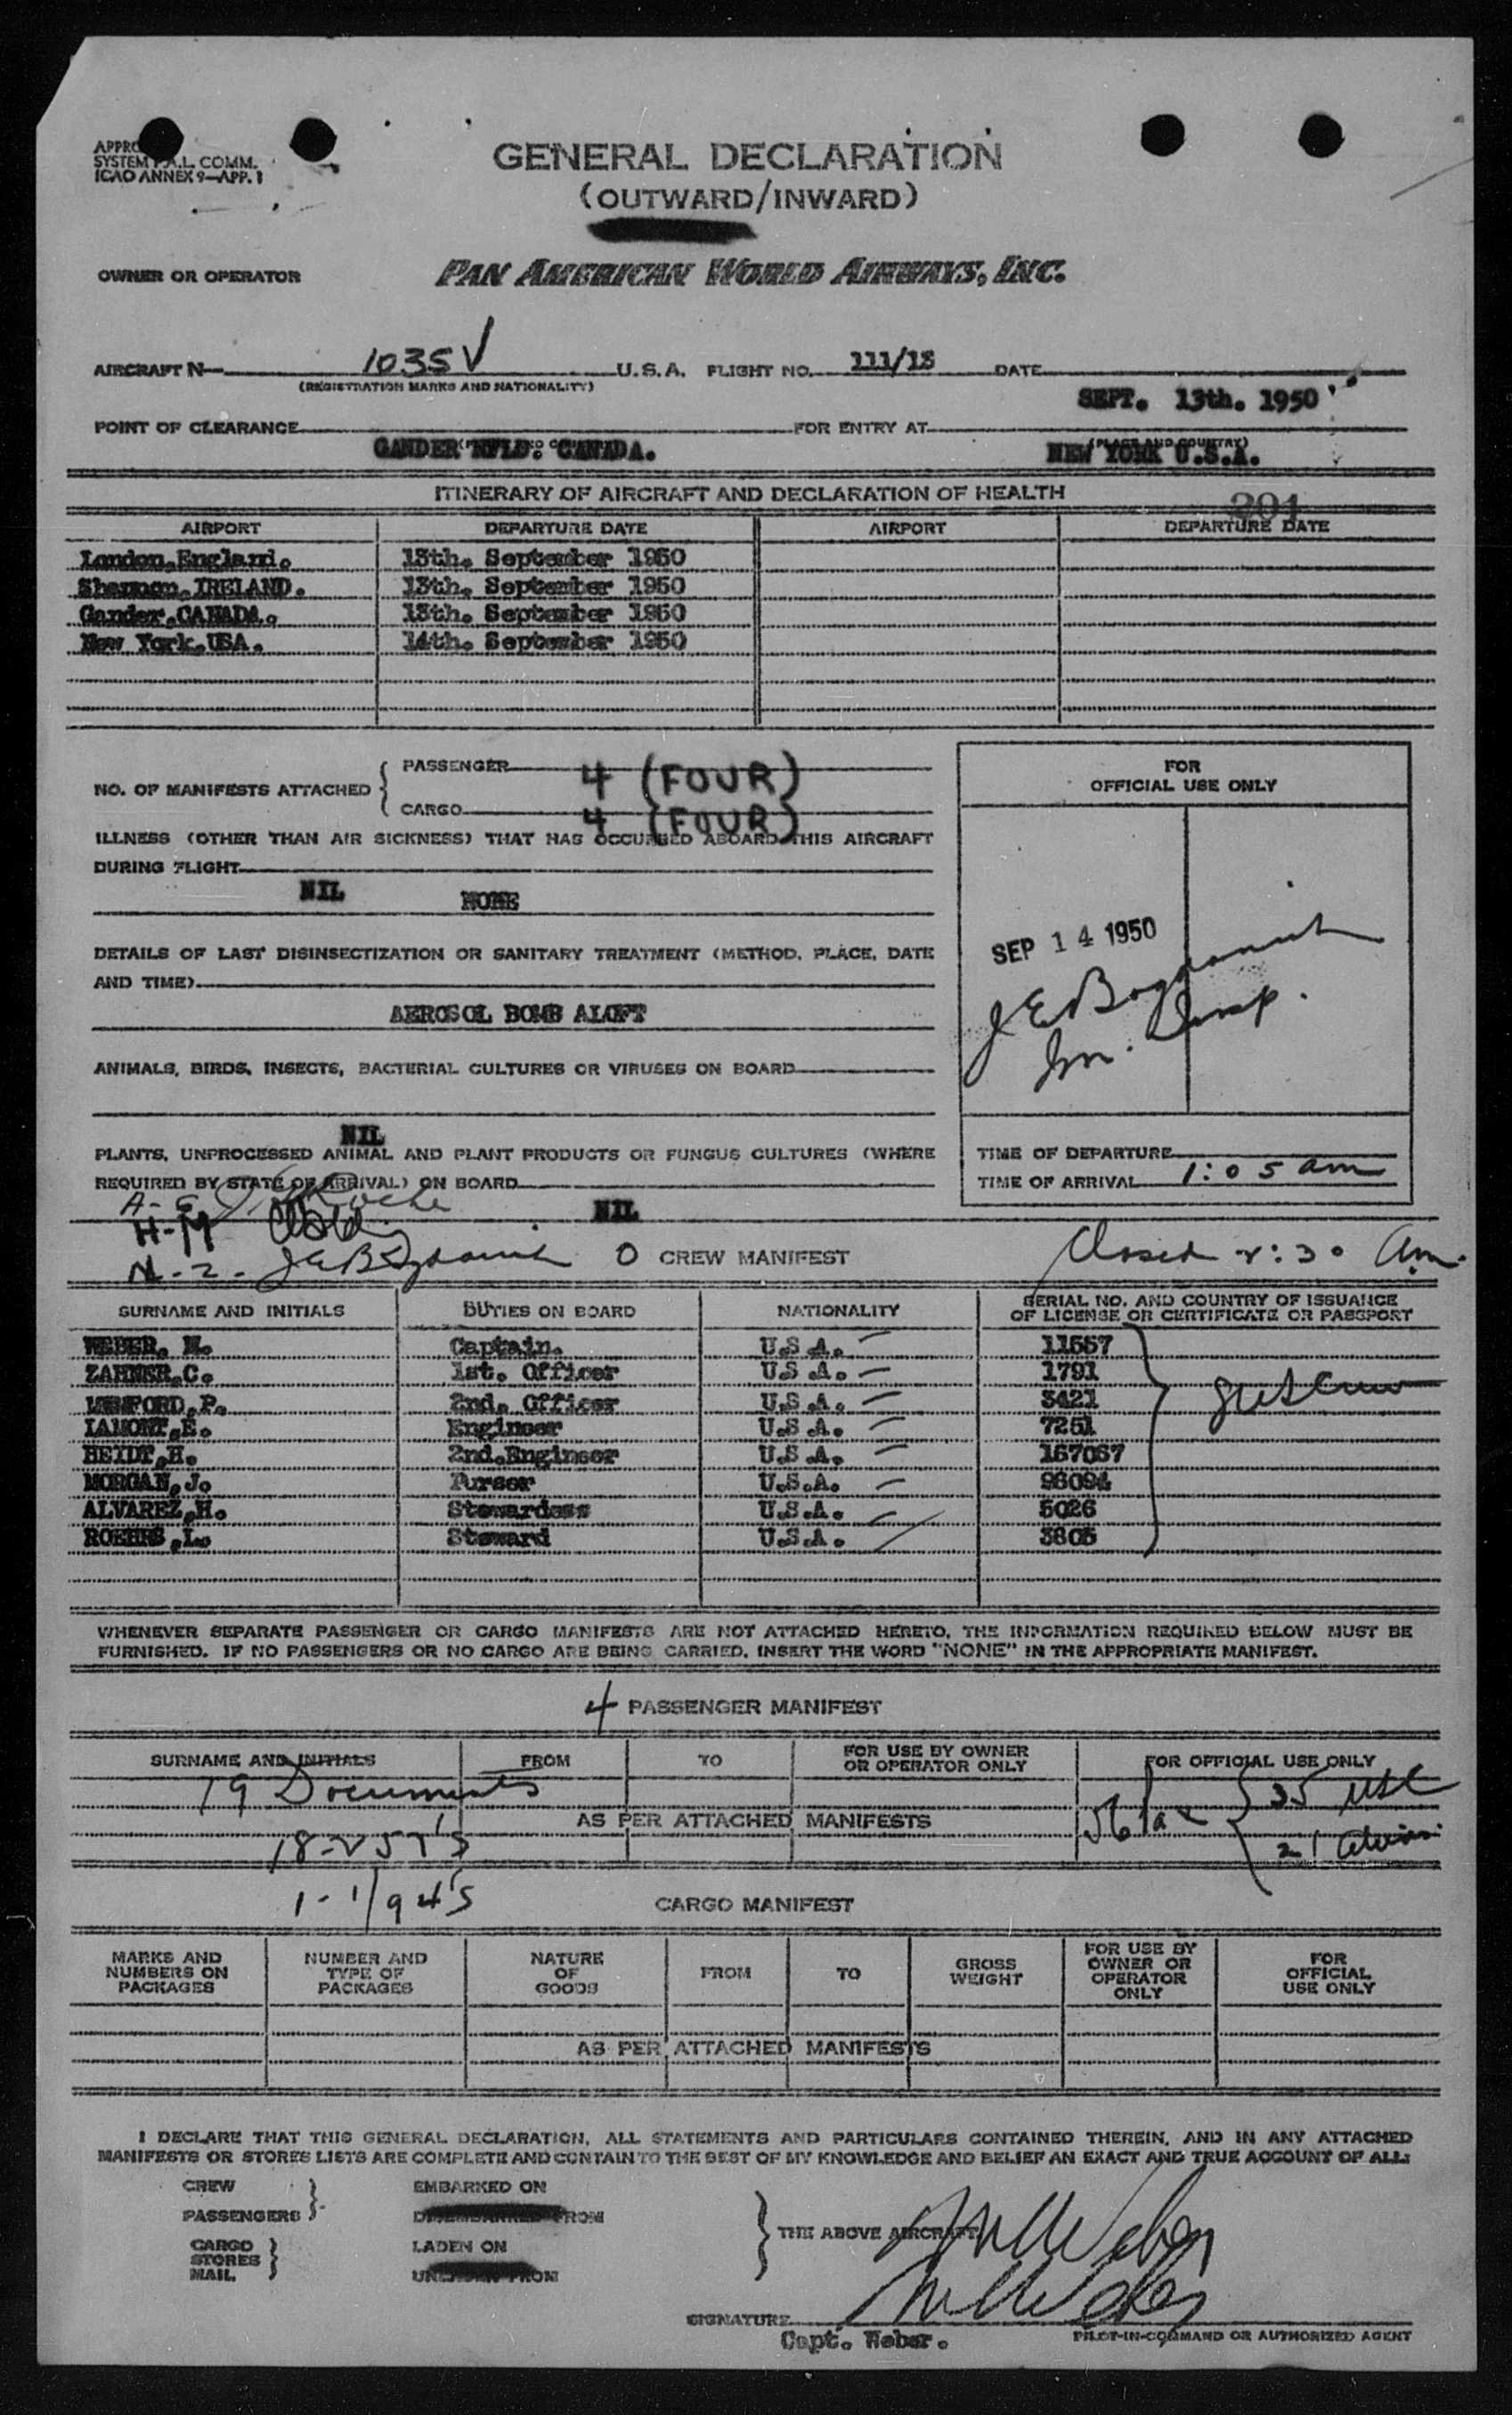 SYSTEM F.A.L. COMM.
ICAO ANNEX 9—APP. 1
GENERAL DECLARATION
(OUTWARD/INWARD)
OWNER OR OPERATOR PAN AMERICAN WORLD AIRWAYS, INC.
AIRCRAFT N— 1035V U.S.A. FLIGHT NO. 111/13 DATE
(REGISTRATION MARKS AND NATIONALITY)
SEPT. 13th. 1950
POINT OF CLEARANCE FOR ENTRY AT
GANDER NFLD. CANADA. NEW YORK U.S.A.
(PLACE AND COUNTRY)
ITINERARY OF AIRCRAFT AND DECLARATION OF HEALTH
201
AIRPORT DEPARTURE DATE AIRPORT DEPARTURE DATE
London,England. 13th. September 1950
Shannon,IRELAND. 13th. September 1950
Gander,CANADA. 13th. September 1950
New York,USA. 14th. September 1950
NO. OF MANIFESTS ATTACHED
PASSENGER 4 (FOUR)
CARGO 4 (FOUR)
ILLNESS (OTHER THAN AIR SICKNESS) THAT HAS OCCURRED ABOARD THIS AIRCRAFT
DURING FLIGHT
NIL NONE
DETAILS OF LAST DISINSECTIZATION OR SANITARY TREATMENT (METHOD, PLACE, DATE
AND TIME)
AEROSOL BOMB ALOFT
ANIMALS, BIRDS, INSECTS, BACTERIAL CULTURES OR VIRUSES ON BOARD
NIL
PLANTS, UNPROCESSED ANIMAL AND PLANT PRODUCTS OR FUNGUS CULTURES (WHERE
REQUIRED BY STATE OF ARRIVAL) ON BOARD
NIL
FOR
OFFICIAL USE ONLY
SEP 14 1950
Im. Insp.
TIME OF DEPARTURE
TIME OF ARRIVAL 1:05 am
H-M
N-2-
0 CREW MANIFEST
Closed 2:30 Am.
SURNAME AND INITIALS DUTIES ON BOARD NATIONALITY SERIAL NO. AND COUNTRY OF ISSUANCE
OF LICENSE OR CERTIFICATE OR PASSPORT
WEBER, M. Captain. U.S.A. 11557
ZAHNER,C. 1st. Officer U.S.A. 1791
2nd. Officer U.S.A. 3421
LAMONT,E. Engineer U.S.A. 7251
HEIDT,H. 2nd.Engineer U.S.A. 167067
MORGAN,J. Purser U.S.A. 96094
ALVAREZ,H. Stewardess U.S.A. 5026
ROEHRS,L. Steward U.S.A. 3805
WHENEVER SEPARATE PASSENGER OR CARGO MANIFESTS ARE NOT ATTACHED HERETO, THE INFORMATION REQUIRED BELOW MUST BE
FURNISHED. IF NO PASSENGERS OR NO CARGO ARE BEING CARRIED, INSERT THE WORD "NONE" IN THE APPROPRIATE MANIFEST.
4 PASSENGER MANIFEST
SURNAME AND INITIALS FROM TO FOR USE BY OWNER
OR OPERATOR ONLY FOR OFFICIAL USE ONLY
19 Documents
35 USC
AS PER ATTACHED MANIFESTS
56 Pax
21 Aliens
18-257's
1-1/94's
CARGO MANIFEST
MARKS AND
NUMBERS ON
PACKAGES
NUMBER AND
TYPE OF
PACKAGES
NATURE
OF
GOODS
FROM
TO
GROSS
WEIGHT
FOR USE BY
OWNER OR
OPERATOR
ONLY
FOR
OFFICIAL
USE ONLY
AS PER ATTACHED MANIFESTS
I DECLARE THAT THIS GENERAL DECLARATION, ALL STATEMENTS AND PARTICULARS CONTAINED THEREIN, AND IN ANY ATTACHED
MANIFESTS OR STORES LISTS ARE COMPLETE AND CONTAIN TO THE BEST OF MY KNOWLEDGE AND BELIEF AN EXACT AND TRUE ACCOUNT OF ALL:
CREW
PASSENGERS
EMBARKED ON
FROM
CARGO
STORES
MAIL
LADEN ON
FROM
THE ABOVE AIRCRAFT
M Weber
SIGNATURE M Weber
Capt. Weber.
PILOT-IN-COMMAND OR AUTHORIZED AGENT